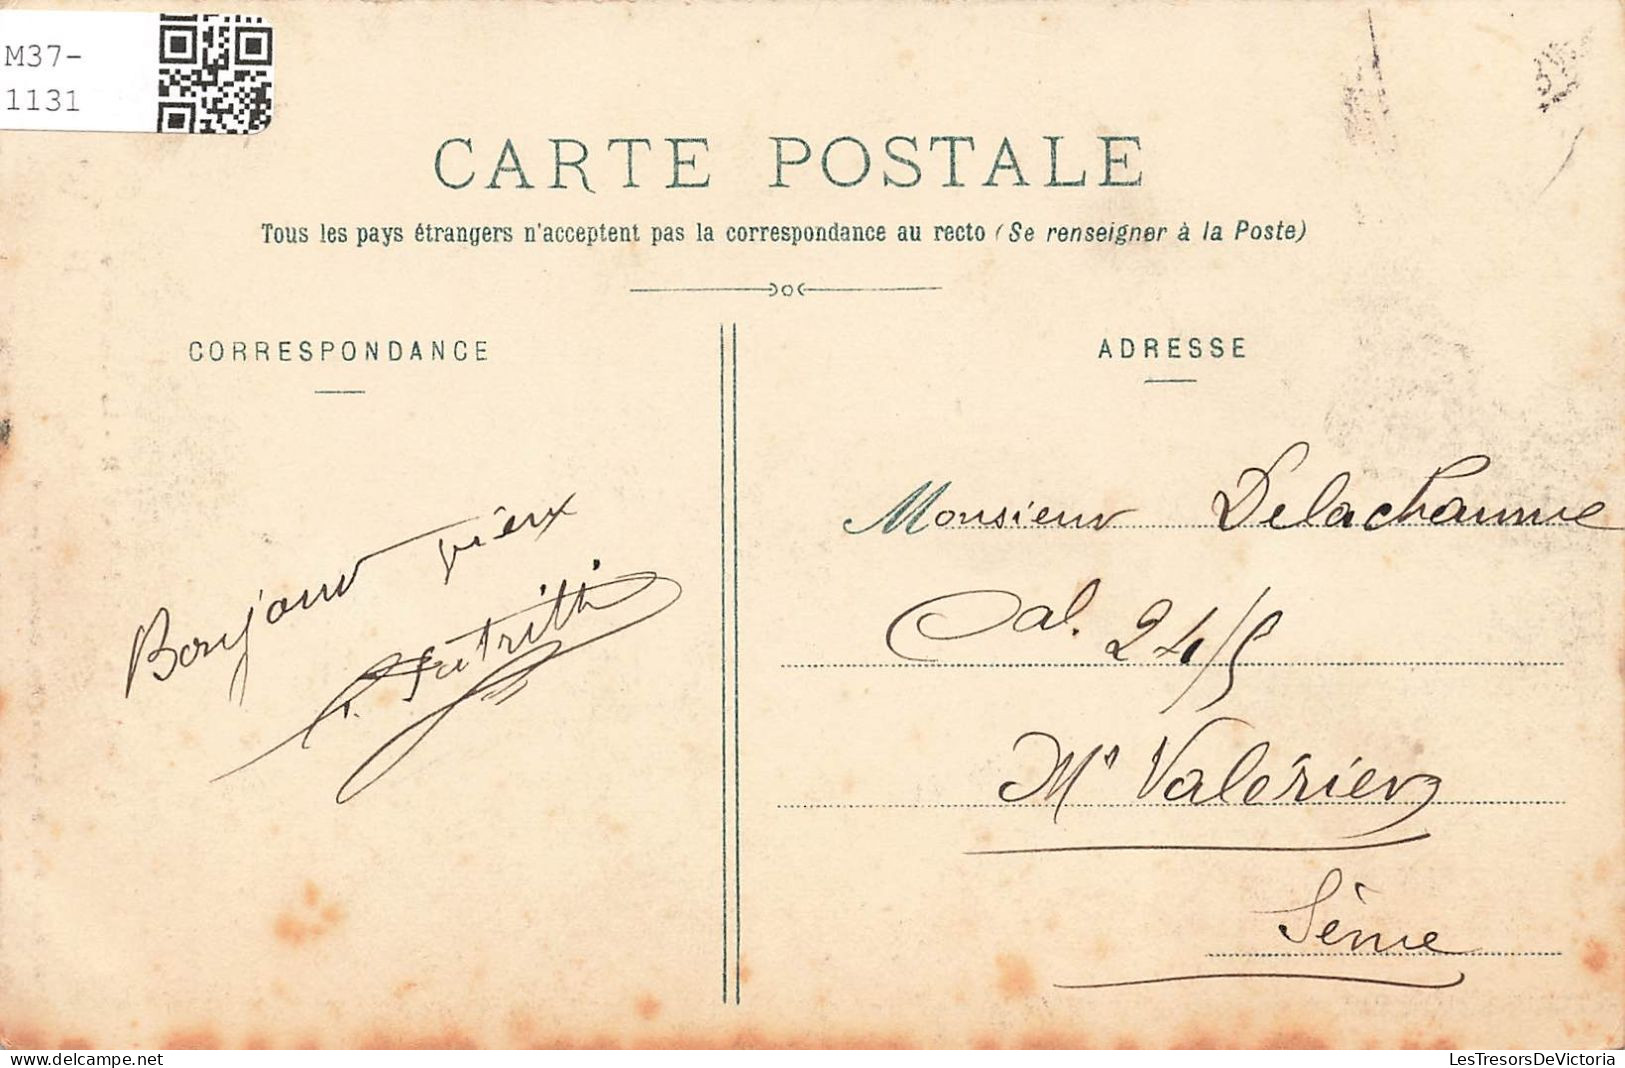 M37-
1131
CARTE POSTALE
Tous les pays étrangers n'acceptent pas la correspondance au recto (Se renseigner à la Poste)
CORRESPONDANCE
Bonjour vieux
ADRESSE
Monsieur Delachaume
Cal. 24/5
Mt Valérien
Seine
LesTresorsDeVictoria
https://www.delcampe.net